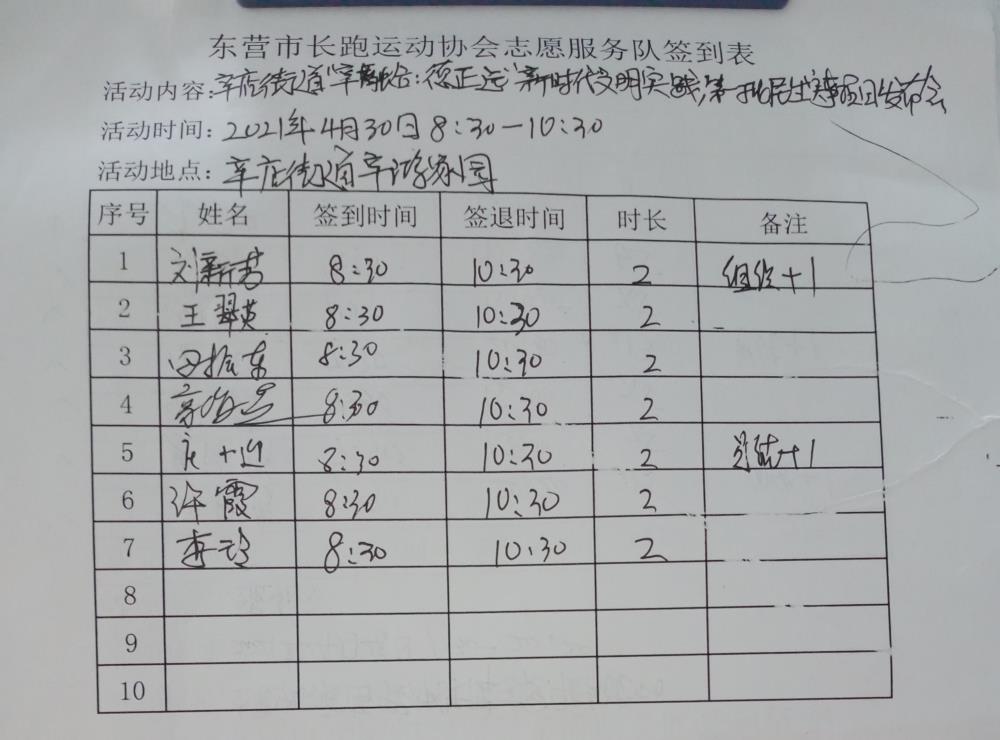 东营市长跑运动协会志愿服务队签到表
活动内容:辛店街道"辛融合:德正远"新时代文明实践第一批民生项目发布会
活动时间:2021年4月30日8:30-10:30
活动地点:辛店街道辛游家园
序号 姓名 签到时间 签退时间 时长 备注
1 刘新芳 8:30 10:30 2 组织+1
2 王翠英 8:30 10:30 2
3 田振东 8:30 10:30 2
4 8:30 10:30 2
5 8:30 10:30 2 总结+1
6 许霞 8:30 10:30 2
7 李玲 8:30 10:30 2
8
9
10